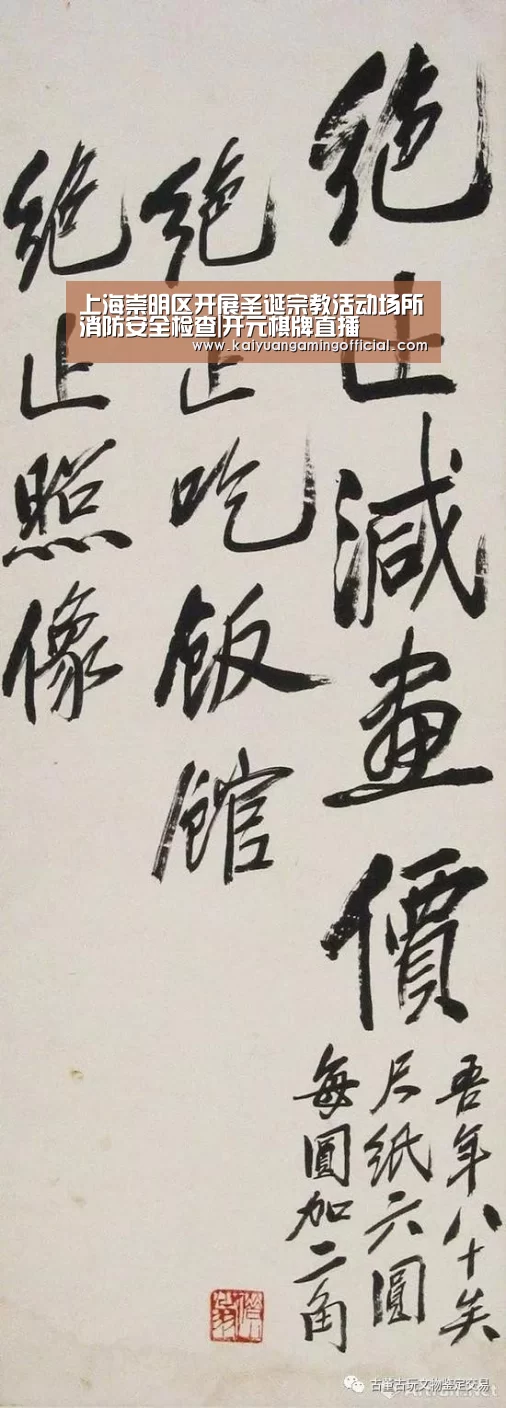 絕止減畫價
吾年八十矣
尺紙六圓
每圓加二角
絕止吃飯館
絕止照像
上海崇明区开展圣诞宗教活动场所
消防安全检查|开元棋牌直播
www.kaiyuangamingofficial.com
古董古玩文物鉴定交易